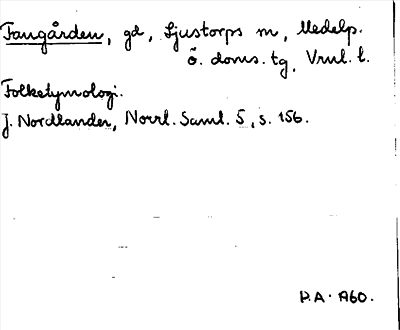 Fangården, gd, Ljustorps sn, Medelp.
ö. doms. tg, Vnrl. l.
Folketymologi.
J. Nordlander, Norrl. Saml. 5, s. 156.
P.A. 1960.